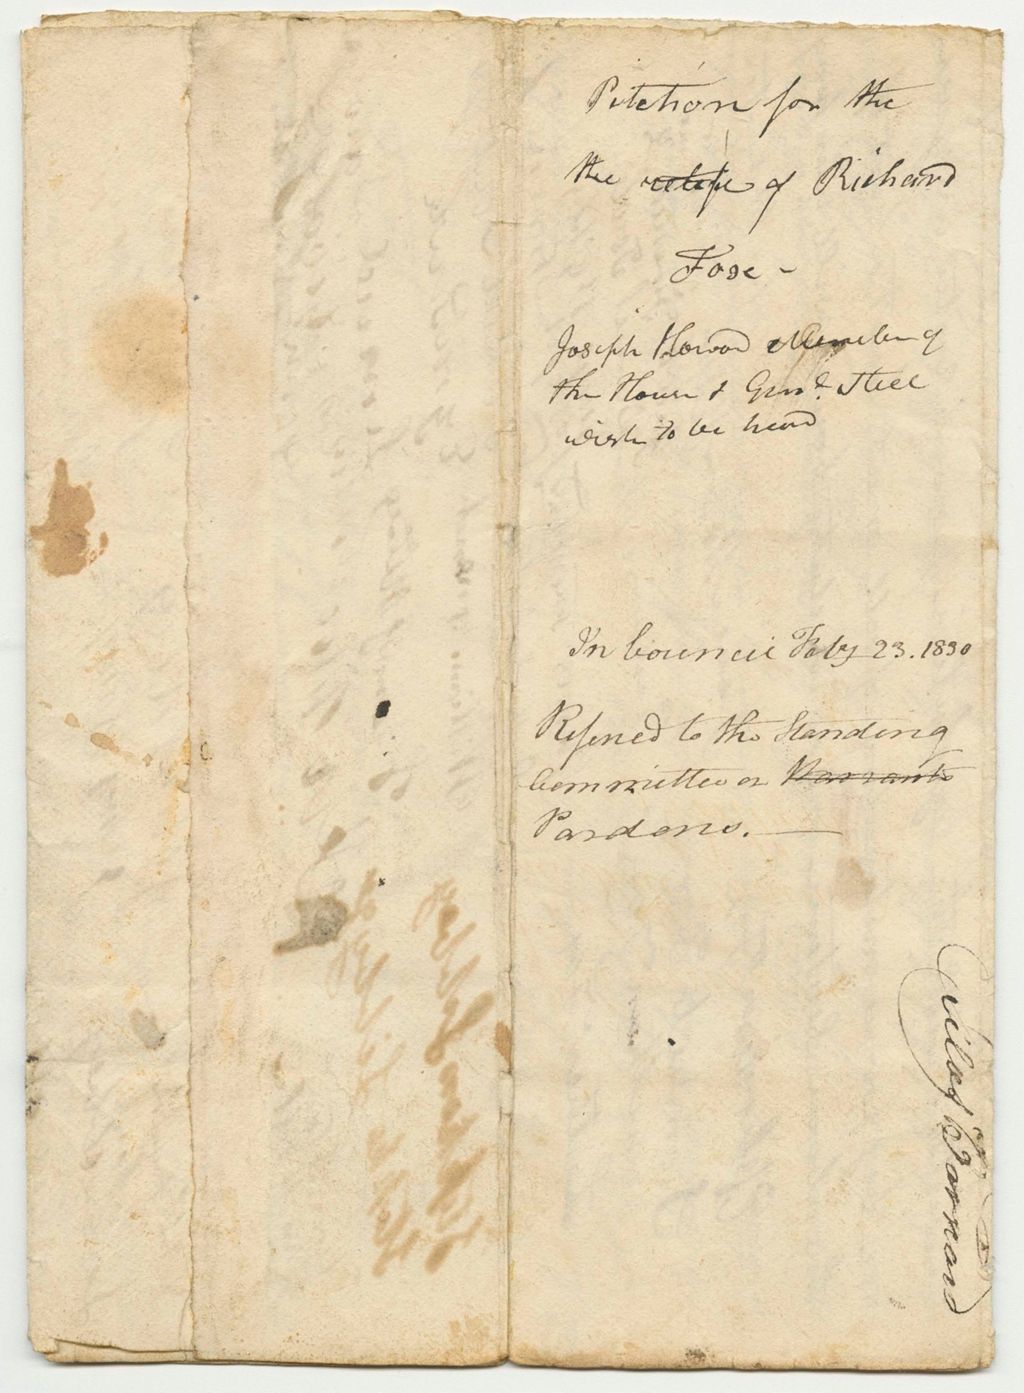 Petetion for the
the relefe of Richard
Foxe -
Joseph Howard Member of
the House & Gend. Steel
wish to be heard
In Council Feby 23. 1830
Refered to the Standing
Committee on Warrants
Pardons. —
Barnard